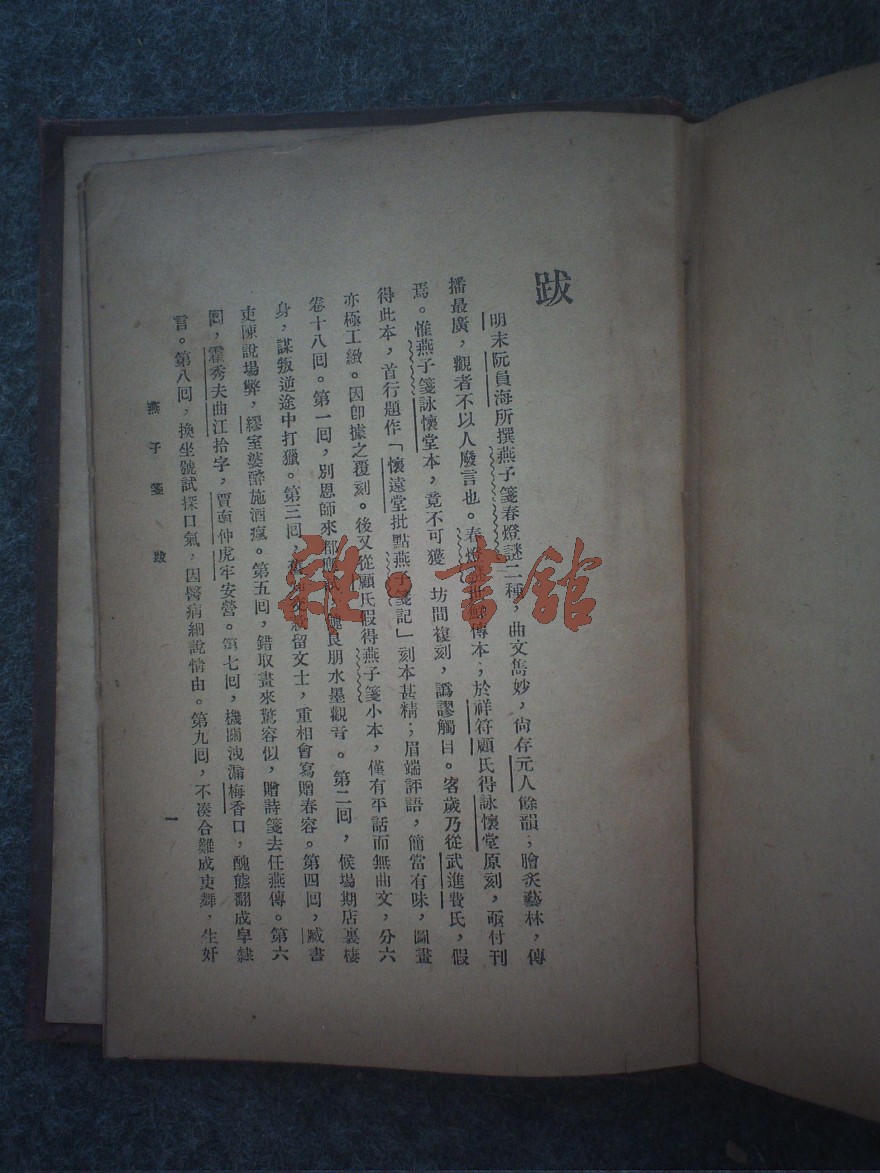 跋
明末阮員海所撰燕子箋春燈謎二種，曲文雋妙，尙存元人餘韻；膾炙藝林，傳
播最廣，觀者不以人廢言也。春燈謎世鮮傳本；於祥符顧氏得詠懷堂原刻，亟付刊
焉。惟燕子箋詠懷堂本，竟不可獲　坊間複刻，譌謬觸目。客歲乃從武進費氏，假
得此本，首行題作「懷遠堂批點燕子箋記」刻本甚精；眉端評語，簡當有味，圖畫
亦極工緻。因卽據之覆刻。後又從顧氏假得燕子箋小本，僅有平話而無曲文，分六
卷十八回。第一回，別恩師來都應試，良朋水墨觀音。第二回，候場期店裏棲
身，謀叛逆途中打獵。第三回，留文士，重相會寫贈春容。第四回，臧書
吏陳說場弊，繆室婆醉施酒瘋。第五回，錯取畫來驚容似，贈詩箋去任燕傳。第六
回，霍秀夫曲江拾字，賈南仲虎牢安營。第七回，機關洩漏梅香口，醜態翻成皁隸
言。第八回，換坐號試探口氣，因醫病細說情由。第九回，不湊合難成吏舞，生奸
燕子箋　跋
一
雜·書館